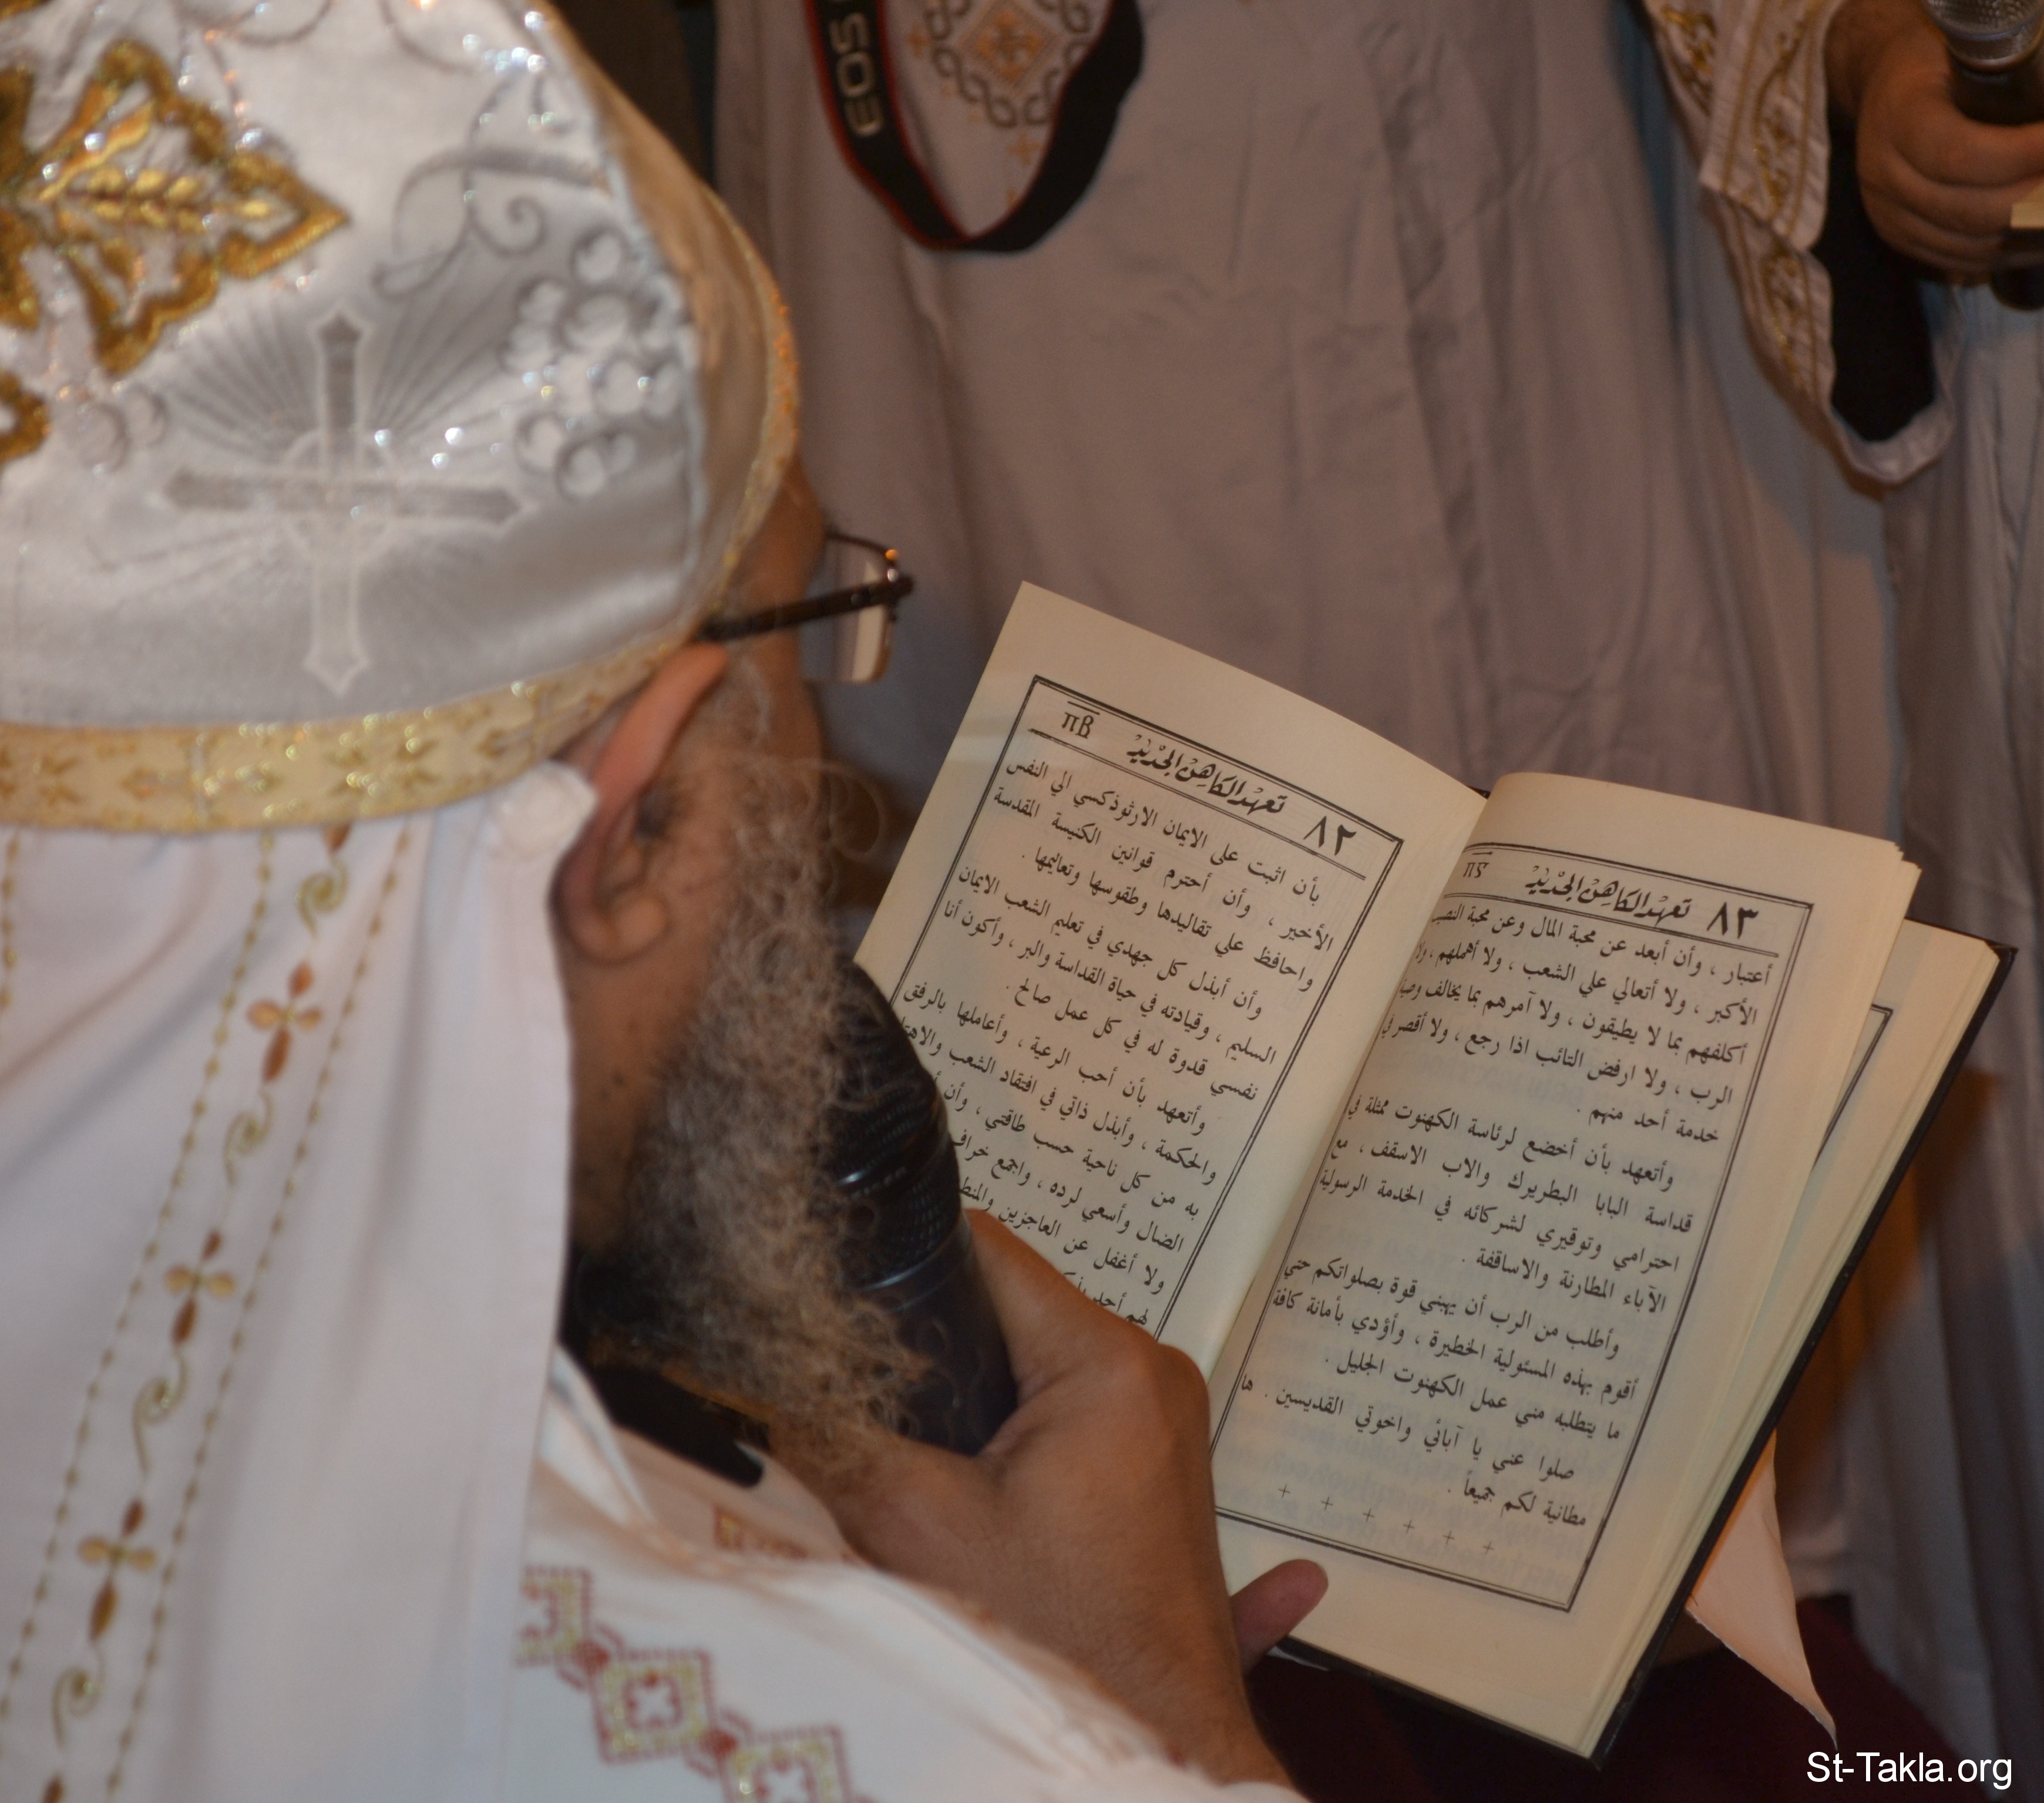 EOS
٨٢ تعهد الكاهن الجديد ΠΒ
بأن اثبت علي الايمان الارثوذكسي الي النفس
الأخير ، وأن أحترم قوانين الكنيسة المقدسة
واحافظ علي تقاليدها وطقوسها وتعاليمها .
وأن أبذل كل جهدي في تعليم الشعب الايمان
السليم ، وقيادته في حياة القداسة والبر ، وأكون أنا
نفسي قدوة له في كل عمل صالح .
وأتعهد بأن أحب الرعية ، وأعاملها بالرفق
والحكمة ، وأبذل ذاتي في افتقاد الشعب
به من كل ناحية حسب طاقتي ، وأن
الضال وأسعي لرده ، واجمع
ولا أغفل عن العاجزين
لهم
٨٣ تعهد الكاهن الجديد
أعتبار ، وأن أبعد عن محبة المال وعن محبة
الأكبر ، ولا أتعالي علي الشعب ، ولا أهملهم ، ولا
أكلفهم بما لا يطيقون ، ولا آمرهم بما يخالف
الرب ، ولا ارفض التائب اذا رجع ، ولا أقصر في
خدمة أحد منهم .
وأتعهد بأن أخضع لرئاسة الكهنوت ممثلة في
قداسة البابا البطريرك والاب الاسقف ، مع
احترامي وتوقيري لشركائه في الخدمة الرسولية
الآباء المطارنة والاساقفة .
وأطلب من الرب أن يهبني قوة بصلواتكم حتي
أقوم بهذه المسئولية الخطيرة ، وأؤدي بأمانة كافة
ما يتطلبه مني عمل الكهنوت الجليل .
صلوا عني يا آبائي واخوتي القديسين . ها
مطانية لكم جميعاً .
+ + + + + +
St-Takla.org